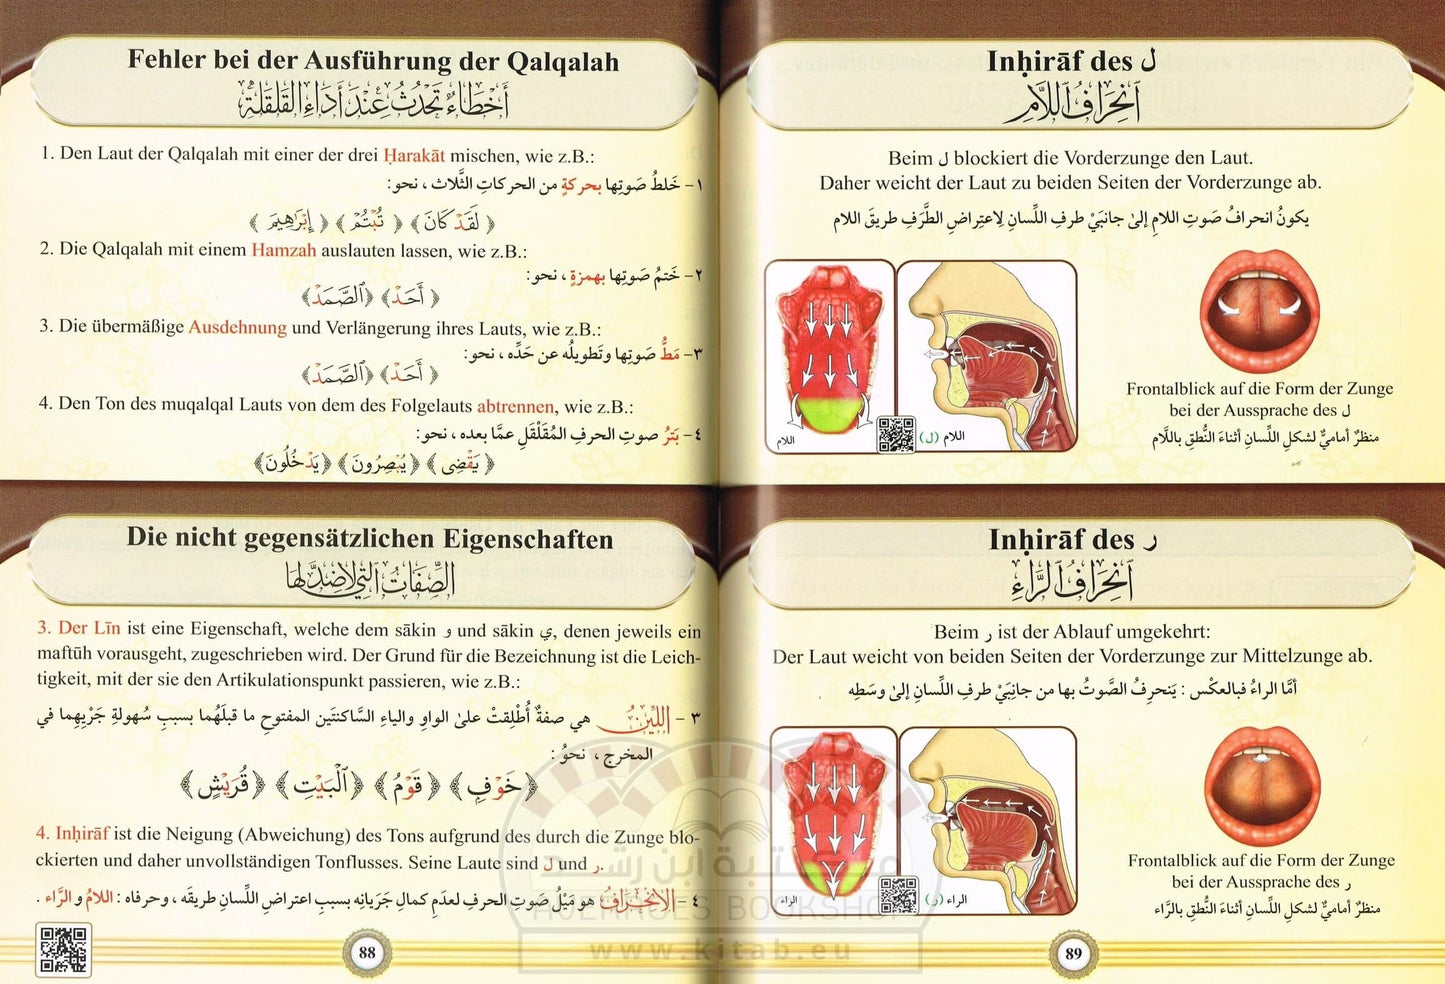 Fehler bei der Ausführung der Qalqalah
أَخْطَاءٌ تَحْدُثُ عِنْدَ أَدَاءِ الْقَلْقَلَةِ
1. Den Laut der Qalqalah mit einer der drei Ḥarakāt mischen, wie z.B.:
١- خَلطُ صَوتِها بحركةٍ من الحركاتِ الثَّلاث ، نحو:
﴿ لَقَدْ كَانَ ﴾ ﴿ تُبْتُمْ ﴾ ﴿ إِبْرَٰهِيمَ ﴾
2. Die Qalqalah mit einem Hamzah auslauten lassen, wie z.B.:
٢- خَتمُ صَوتِها بهمزةٍ ، نحو:
﴿ أَحَدْ ﴾ ﴿ ٱلصَّمَدْ ﴾
3. Die übermäßige Ausdehnung und Verlängerung ihres Lauts, wie z.B.:
٣- مَطُّ صَوتِها وتَطويلُه عن حَدِّه ، نحو:
﴿ أَحَدْ ﴾ ﴿ ٱلصَّمَدْ ﴾
4. Den Ton des muqalqal Lauts von dem des Folgelauts abtrennen, wie z.B.:
٤- بَترُ صوتِ الحرفِ المُقَلْقَلِ عمَّا بعده ، نحو:
﴿ يَقْضِى ﴾ ﴿ يُبْصِرُونَ ﴾ ﴿ يَدْخُلُونَ ﴾
Inḥirāf des ل
ٱنْحِرَافُ ٱللَّامِ
Beim ل blockiert die Vorderzunge den Laut.
Daher weicht der Laut zu beiden Seiten der Vorderzunge ab.
يكونُ انحرافُ صَوتِ اللامِ إلىٰ جانبَيْ طرفِ اللِّسانِ لِاعتِراضِ الطَّرَفِ طريقَ اللام
اللام
اللام (ل)
Frontalblick auf die Form der Zunge
bei der Aussprache des ل
منظرٌ أماميٌّ لشكلِ اللِّسانِ أثناءَ النُّطقِ باللَّام
Die nicht gegensätzlichen Eigenschaften
الصِّفَاتُ الَّتِي لَا ضِدَّ لَهَا
3. Der Līn ist eine Eigenschaft, welche dem sākin و und sākin ي, denen jeweils ein
maftūh vorausgeht, zugeschrieben wird. Der Grund für die Bezeichnung ist die Leich-
tigkeit, mit der sie den Artikulationspunkt passieren, wie z.B.:
٣ - اللِّينُ هي صفةٌ أُطْلِقتْ علىٰ الواوِ والياءِ السَّاكنتَينِ المفتوحِ ما قبلَهُما بسببِ سُهولةِ جَرْيِهِما في
المخرج ، نحوُ:
﴿ خَوْفٍ ﴾ ﴿ قَوْمُ ﴾ ﴿ ٱلْبَيْتِ ﴾ ﴿ قُرَيْشٍ ﴾
4. Inḥirāf ist die Neigung (Abweichung) des Tons aufgrund des durch die Zunge blo-
ckierten und daher unvollständigen Tonflusses. Seine Laute sind ل und ر.
٤ - الاِنْحِرَافُ هو مَيْلُ صَوتِ الحرفِ لعدَمِ كمالِ جَرَيانِه بسببِ اعتراضِ اللِّسانِ طريقَه ، وحرفاه : اللامُ و الرَّاء .
88
Inḥirāf des ر
ٱنْحِرَافُ ٱلرَّاءِ
Beim ر ist der Ablauf umgekehrt:
Der Laut weicht von beiden Seiten der Vorderzunge zur Mittelzunge ab.
أمَّا الراءُ فبالعكْس : يَنحرِفُ الصَّوتُ بها من جانِبَيْ طرفِ اللِّسانِ إلىٰ وسَطِه
الراء
الراء (ر)
Frontalblick auf die Form der Zunge
bei der Aussprache des ر
منظرٌ أماميٌّ لشكلِ اللِّسانِ أثناءَ النُّطقِ بالرَّاء
89
مكتبة ابن رشد
AVERROES BOOKSHOP
www.kitab.eu